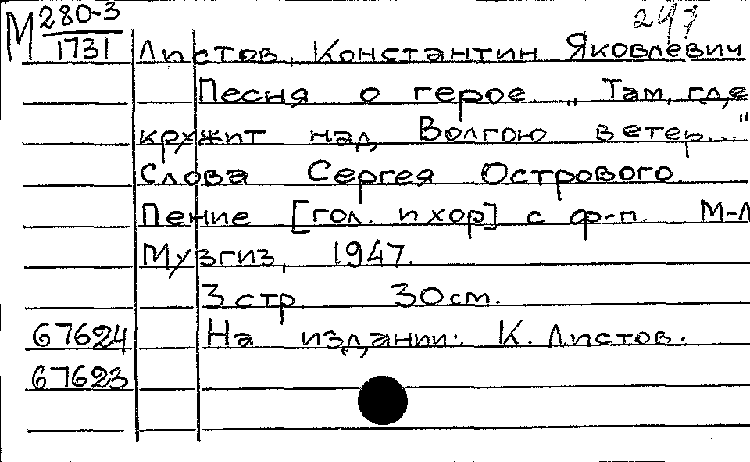 М 280-3 247
1731 Листов, Константин Яковлевич
Песня о герое „Там, где
кружит над Волгою ветер..."
Слова Сергея Острового
Пение [гол. и хор] с ф-п. М-Л
Музгиз, 1947.
3 стр 30 см.
67624 На издании: К. Листов.
67623